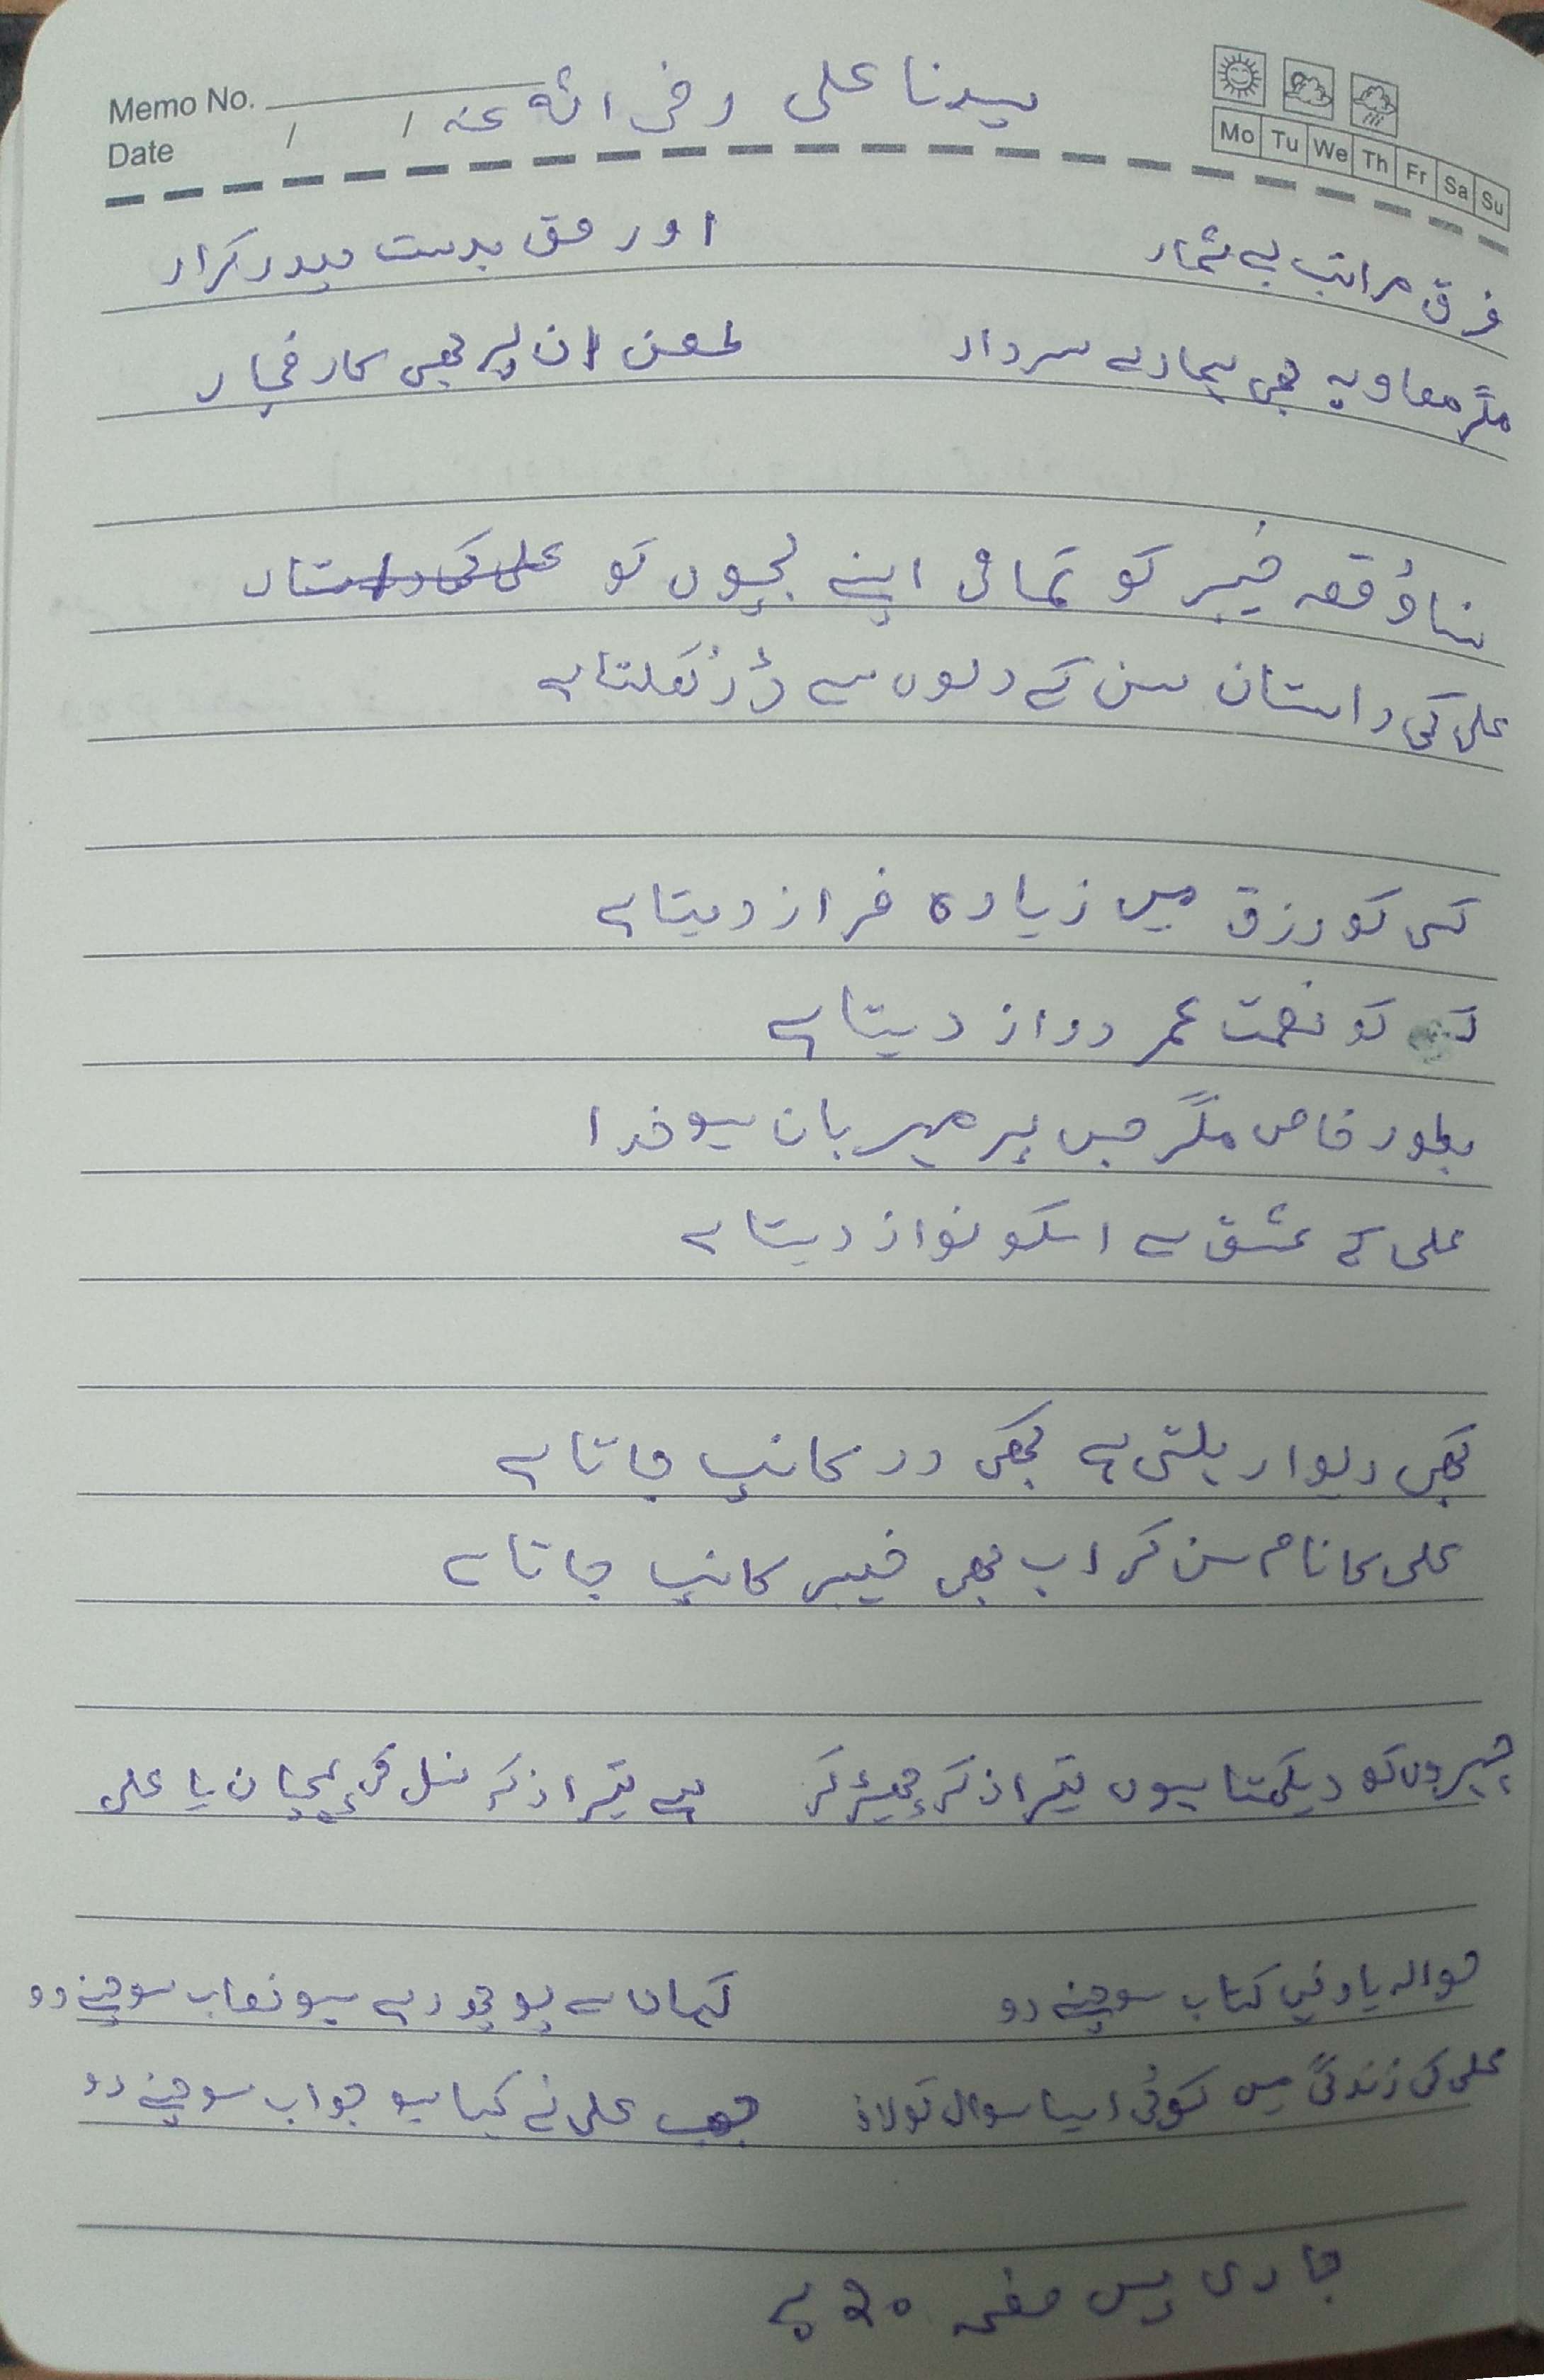 Memo No.
Date / /
Mo Tu We Th Fr Sa Su
سیدنا علی رضی اللہ عنہ
فرق مراتب بے شمار اور حق بدست حیدر کرار
مگر معاویہ بھی ہمارے سردار لعن ان پر بھی کار فجار
سناؤ قصہ خیبر کو تمامی اپنے بچوں کو
علی کی داستان سن کے دلوں سے ڈر نکلتا ہے
کسی کو رزق میں زیادہ فراز دیتا ہے
کو نعمت عمر دراز دیتا ہے
بطور خاص مگر جس پر مہربان ہو خدا
علی کے عشق سے اسکو نواز دیتا ہے
کبھی دیوار ہلتی ہے کبھی در کانپ جاتا ہے
علی کا نام سن کر اب بھی خیبر کانپ جاتا ہے
چہروں کو دیکھتا ہوں تیرا ذکر چھیڑ کر ہے تیرا ذکر نسل کی پہچان یا علی
حوالہ یا وہی کتاب سوچنے دو کہاں سے پوچھ رہے ہو نصاب سوچنے دو
علی کی زندگی میں کوئی ایسا سوال تو لاؤ جب علی نے کہا ہو جواب سوچنے دو
جاری ہیں صفحہ 20 پہ